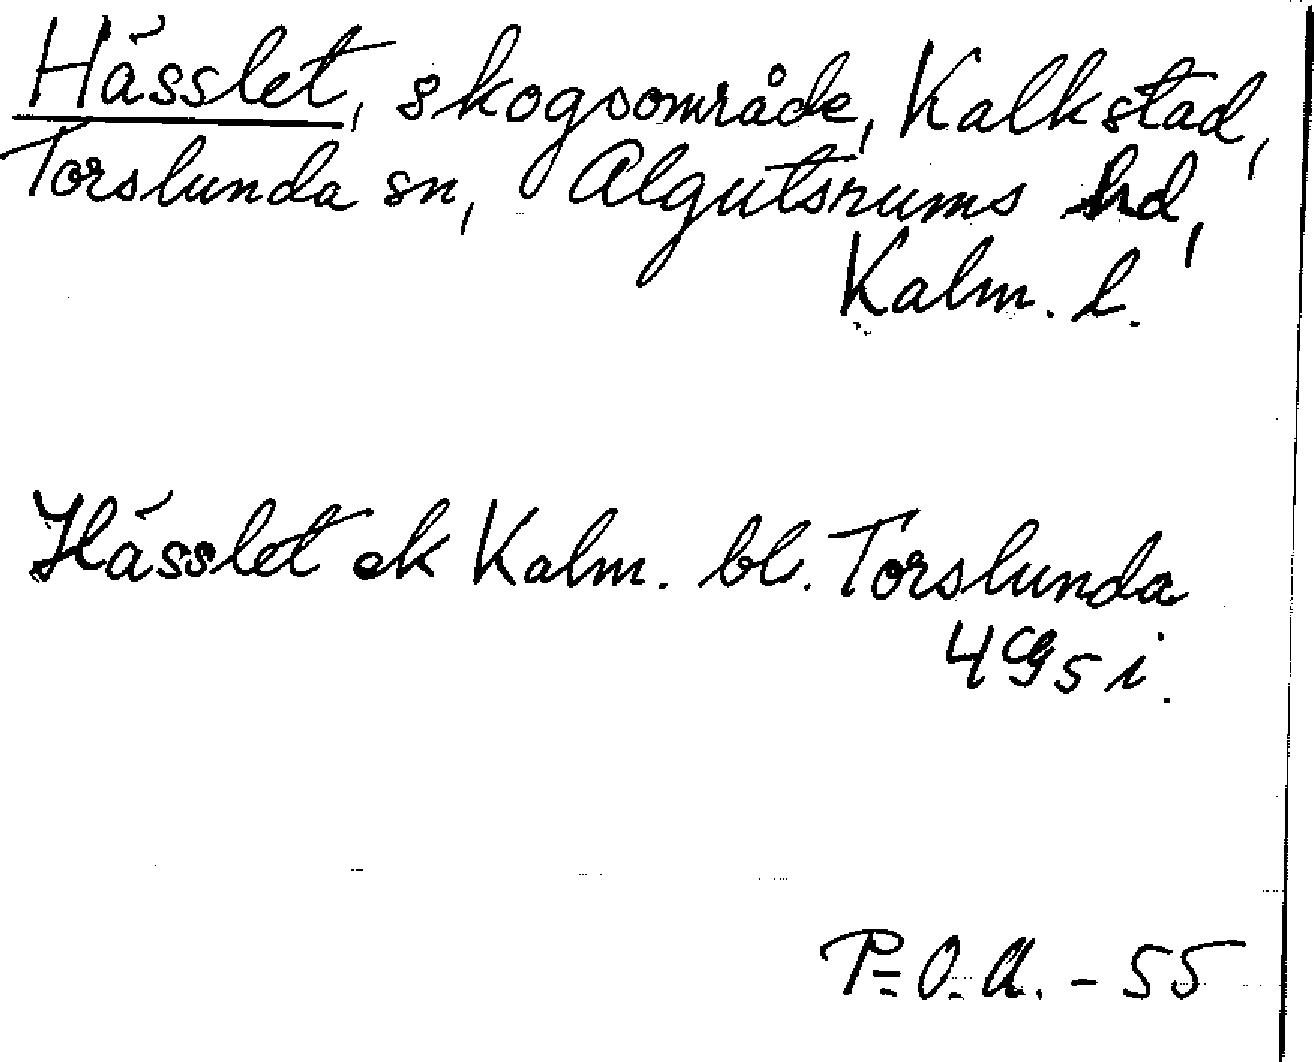 Hässlet, skogsområde, Kalkstad,
Torslunda sn, Algutsrums hd,
Kalm. l.
Hässlet ek Kalm. bl. Torslunda
4G5i.
P-O.A. - 55